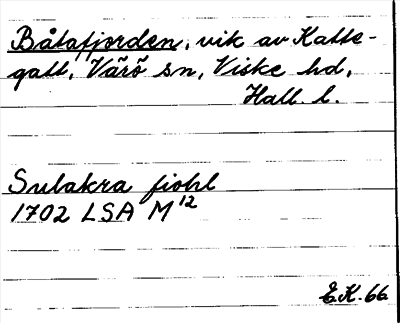 Båtafjorden, vik av Katte-
gatt, Värö sn, Viske hd,
Hall. l.
Sulakra fiohl
1702 LSA M 12
E.K. 66